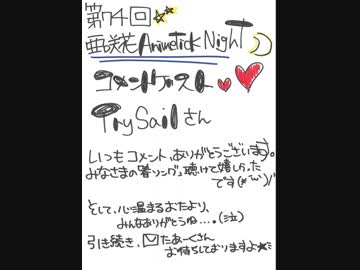 第74回
亜咲花 AnimeTick Night
コメントゲスト
TrySailさん
いつもコメント、ありがとうございます。
みなさまの春ソング、聴けて嬉しかった
です(*´ω`)ﾉ
そして、心温まるおたより、
みんなありがとうね…。(泣)
引き続き、たあーくさん
お待ちしておりますよ